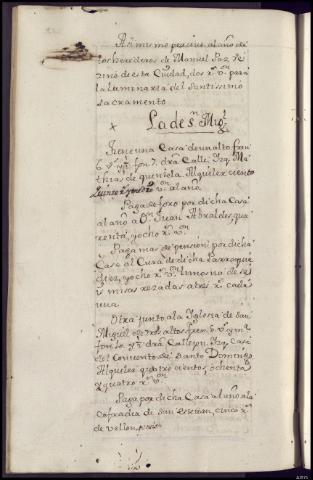 Asimismo percive al año de
los herederos de Manuel Paz, Ve
zino de esta Ciudad, dos r.s v.on para
la luminaria del Santissimo
sacramento
La de S.n Mig.l
Tiene una Casa de un alto fren.
Calle, Yzq. Ma
thias de quintela Alquiler ciento
v.on al año
Paga de foro por dicha Casa
al año a D.n Juan Abraldes, qua
renta, y ocho r.s v.on
Paga mas de pension por dicha
Casa al Cura de dicha Parroquia
diez, y ocho r.s v.on limosna de se
is misas rezadas a tres r.s cada
una
Otra junto a la Yglesia de San
Miguel de tres altos fren.
Callejon Yzq. Casa
del Convento de Santo Domingo
Alquiler quatro cientos, ochenta
y quatro r.s v.on
Paga por dicha Casa al año a la
cofradia de San Esteban, cinco r.s
de vellon